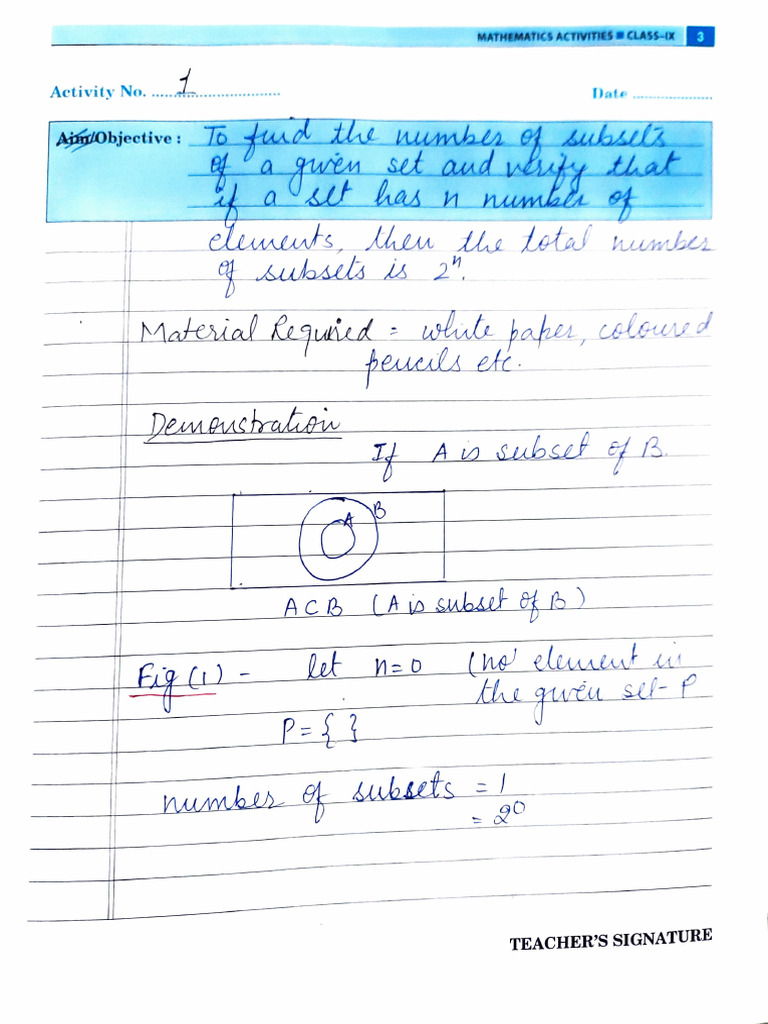 MATHEMATICS ACTIVITIES ■ CLASS–IX 3
Activity No. .....1..... Date ....................
Aim/Objective : To find the number of subsets
of a given set and verify that
if a set has n number of
elements, then the total number
of subsets is 2ⁿ.
Material Required = white paper, coloured
pencils etc.
Demonstration
If A is subset of B.
B
A
A ⊂ B (A is subset of B)
Fig (1) – let n=0 (no element in
the given set P
P = { }
number of subsets = 1
= 2⁰
TEACHER'S SIGNATURE